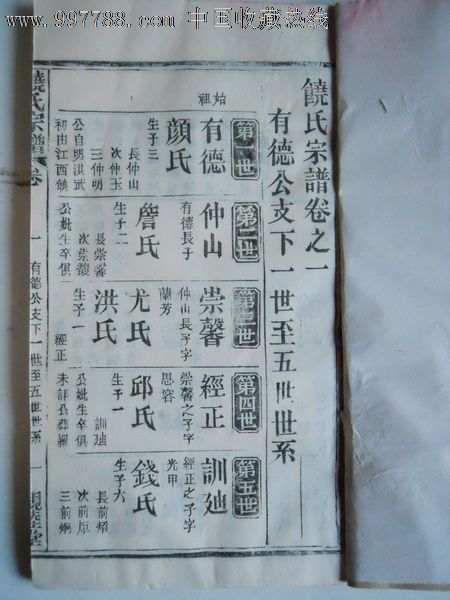 www.997788.com 中国收藏热线
饒氏宗譜卷之一
有德公支下一世至五世世系
第一世
始祖
有德
顔氏
生子三
長仲山
次仲玉
三仲明
公自明洪武
初由江西饒
第二世
仲山
有德長子
詹氏
生子二
長崇馨
次崇馥
公妣生卒俱
第三世
崇馨
仲山長子字
蘭芳
尤氏
洪氏
生子一
經正
第四世
經正
崇馨之子字
思容
邱氏
生子一
訓廸
公妣生卒俱
未詳公葬羅
第五世
訓廸
經正之子字
光甲
錢氏
生子六
長前炤
次前烜
三前炯
饒氏宗譜
卷
一
有德公支下一世至五世世系
一